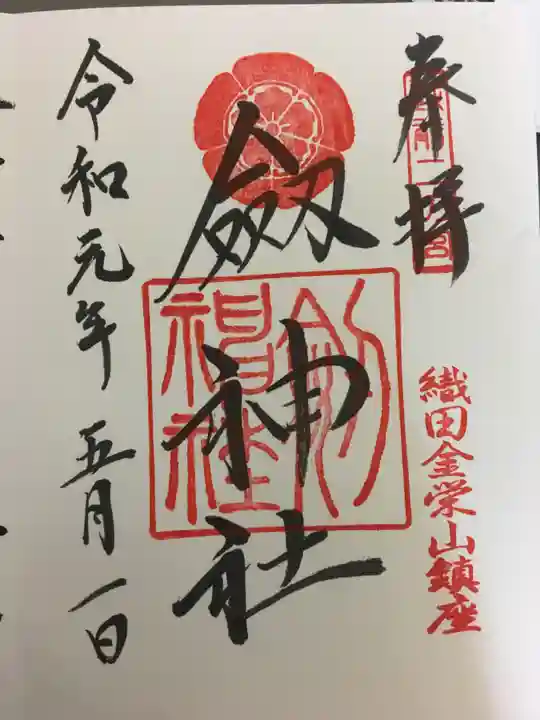 奉拝
越前二宮
織田金栄山鎮座
劔神社
劔神社
令和元年五月一日